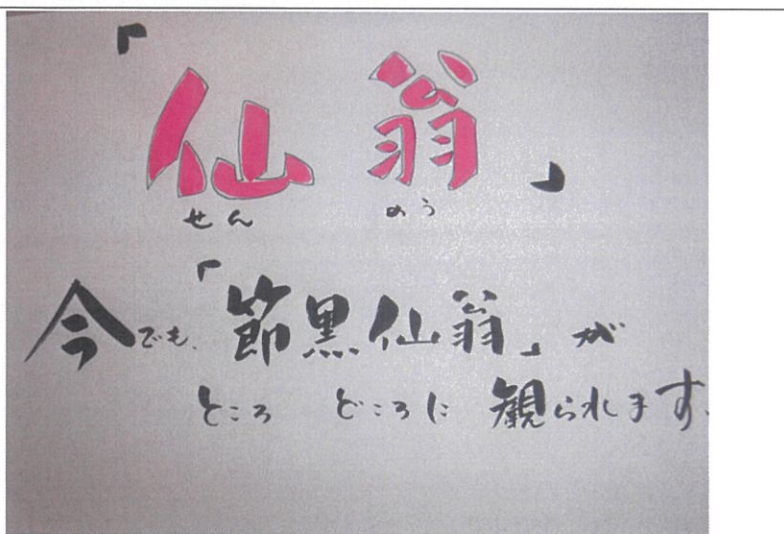 「仙翁」
せんのう
今でも、「節黒仙翁」が
ところ どころに 観られます。